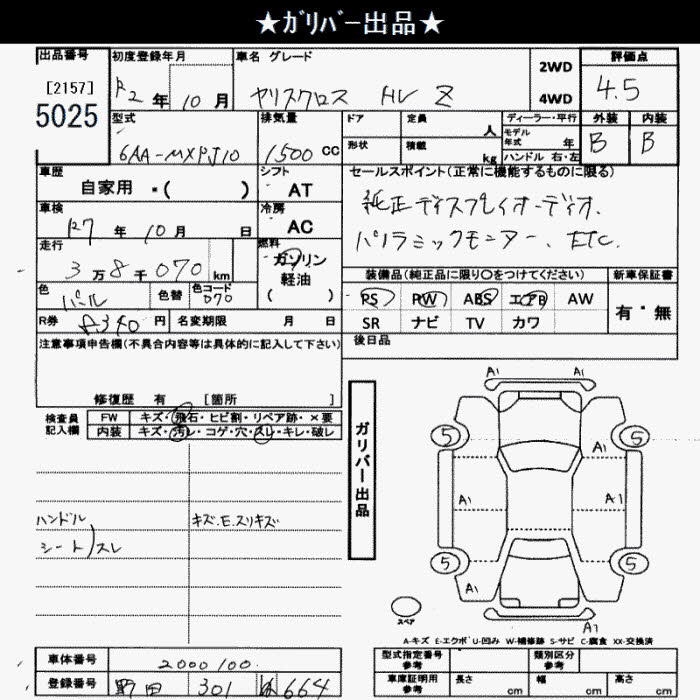 ★ガリバー出品★
出品番号 初度登録年月 車名 グレード 評価点
[2157]
5025
R2年 10月
ヤリスクロス HV Z
2WD
4WD
4.5
型式 排気量 ドア 定員 ディーラー・平行 外装 内装
6AA-MXPJ10
1500 cc
人
モデル年式 年
形状 積載 kg
ハンドル 右・左
B B
車歴 シフト
自家用 ・( ) AT
セールスポイント(正常に機能するものに限る)
純正ディスプレイオーディオ.
パノラミックモニター、ETC.
車検 冷房
R7年 10月 日 AC
走行 燃料
3万8千070 km
ガソリン
軽油
( )
装備品(純正品に限り○をつけてください) 新車保証書
PS PW ABS エアB AW
SR ナビ TV カワ
有・無
色 色替 色コード
パール 070
R券 円 名変期限 月 日
後日品
注意事項申告欄(不具合内容等は具体的に記入して下さい)
修復歴 有 [箇所 ]
検査員
記入欄
FW キズ・飛石・ヒビ割・リペア跡・×要
内装 キズ・汚レ・コゲ・穴・スレ・キレ・破レ
ハンドル
シート)スレ
キズ.E.スリキズ
ガリバー出品
A1 A1
5 5
A1
A1 A1
5 5
A1
A1
スペア
A-キズ E-エクボ U-凹み W-補修跡 S-サビ C-腐食 XX-交換済
車体番号 2000100.
登録番号 野田 301 664
型式指定番号 参考 類別区分 参考
車庫証明用 参考 長さ cm 幅 cm 高さ cm